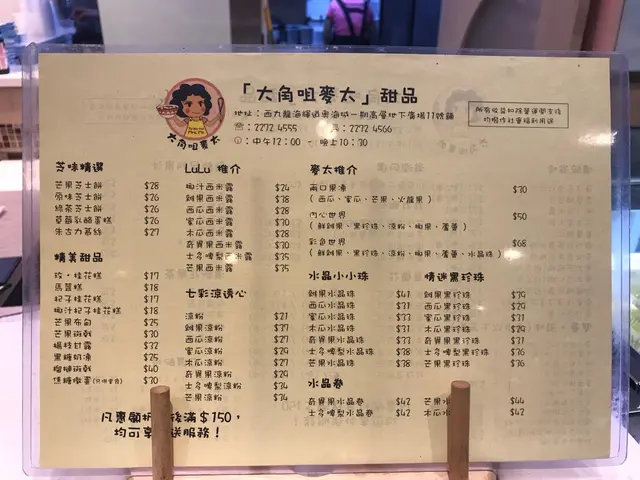 「大角咀麥太」甜品
地址：西九龍海輝道奧海城一期高層地下廣場11號舖
☎：2272 4555 2272 4566
：中午12:00 - 晚上10:30
所有收益扣除營運開支後
均撥作社會福利用途
大角咀麥太
芝味精選
芒果芝士餅 $28
原味芝士餅 $26
綠茶芝士餅 $26
草莓乳酪蛋糕 $26
朱古力慕絲 $27
精美甜品
玫‧桂花糕 $17
馬荳糕 $18
杞子桂花糕 $17
椰汁杞子桂花糕 $18
芒果布甸 $25
芒果術戟 $30
楊枝甘露 $32
黑糖奶凍 $25
榴槤術戟 $40
焦糖燉蛋 $30
凡惠顧折 後滿$150，
均可享 送服務！
LuLu 推介
椰汁西米露 $24
雜果西米露 $38
西瓜西米露 $28
蜜瓜西米露 $30
木瓜西米露 $28
奇異果西米露 $30
士多啤梨西米露 $35
芒果西米露 $35
七彩涼透心
涼粉 $21
雜果涼粉 $37
西瓜涼粉 $27
蜜瓜涼粉 $29
木瓜涼粉 $27
奇異果涼粉 $29
士多啤梨涼粉 $34
芒果涼粉 $34
麥太推介
兩口果凍 $30
（西瓜、蜜瓜、芒果、火龍果）
內心世界 $50
（鮮雜果、黑珍珠、涼粉、椰果、蘆薈）
彩色世界 $68
（鮮雜果、黑珍珠、涼粉、椰果、蘆薈、水晶珠）
水晶小小珠
雜果水晶珠 $41
西瓜水晶珠 $31
蜜瓜水晶珠 $33
木瓜水晶珠 $31
奇異果水晶珠 $33
士多啤梨水晶珠 $38
芒果水晶珠 $38
情迷黑珍珠
雜果黑珍珠 $39
西瓜黑珍珠 $29
蜜瓜黑珍珠 $31
木瓜黑珍珠 $29
奇異果黑珍珠 $31
士多啤梨黑珍珠 $36
芒果黑珍珠 $36
水晶卷
奇異果水晶卷 $42
士多啤梨水晶卷 $42
芒果水 $44
木瓜水 $42